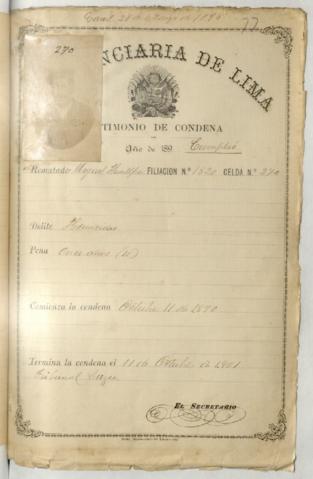 77
270
NCIARIA DE LIMA
TIMONIO DE CONDENA
Año de 189 Cumplió
Rematado Miguel FILIACION N.º 1520 CELDA N.º 270
Delito Homicidio
Pena Once años (11)
Comienza la condena Octubre 11 de 1890
Termina la condena el 11 de Octubre de 1901
Tribunal
EL SECRETARIO